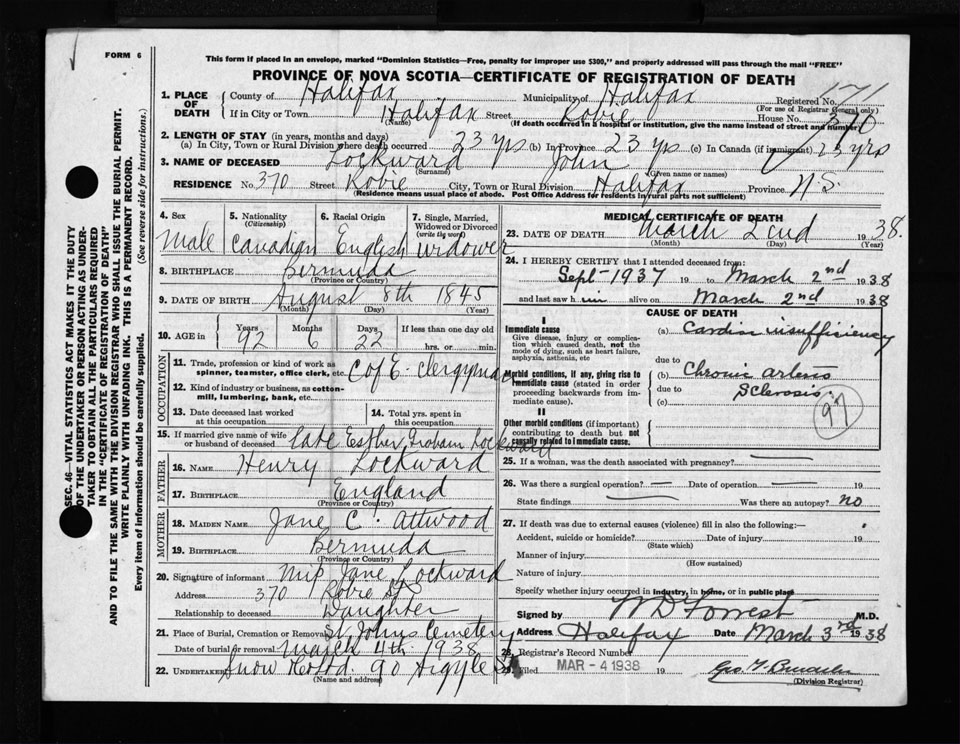 FORM 6
This form if placed in an envelope, marked "Dominion Statistics—Free, penalty for improper use $300," and properly addressed will pass through the mail "FREE"
PROVINCE OF NOVA SCOTIA—CERTIFICATE OF REGISTRATION OF DEATH
1. PLACE OF DEATH
County of Halifax Municipality of Halifax Registered No. 171
(For use of Registrar General only)
If in City or Town Halifax Street Robie House No. 370
(Name) (If death occurred in a hospital or institution, give the name instead of street and number)
2. LENGTH OF STAY (in years, months and days)
(a) In City, Town or Rural Division where death occurred 23 yrs (b) In Province 23 yrs (c) In Canada (if immigrant) 23 yrs
3. NAME OF DECEASED Lockward John
(Surname) (Given name or names)
RESIDENCE No. 370 Street Robie City, Town or Rural Division Halifax Province N.S.
(Residence means usual place of abode. Post Office Address for residents in rural parts not sufficient)
4. Sex Male
5. Nationality (Citizenship) Canadian
6. Racial Origin English
7. Single, Married, Widowed or Divorced (write the word) Widower
8. BIRTHPLACE Bermuda
(Province or Country)
9. DATE OF BIRTH August 8th 1845
(Month) (Day) (Year)
10. AGE in Years 92 Months 6 Days 22 If less than one day old hrs. or min.
OCCUPATION
11. Trade, profession or kind of work as spinner, teamster, office clerk, etc. C of E. Clergyman
12. Kind of industry or business, as cotton-mill, lumbering, bank, etc.
13. Date deceased last worked at this occupation
14. Total yrs. spent in this occupation
15. If married give name of wife or husband of deceased late Esther Lockward
FATHER
16. NAME Henry Lockward
17. BIRTHPLACE England
(Province or Country)
MOTHER
18. MAIDEN NAME Jane C. Attwood
19. BIRTHPLACE Bermuda
(Province or Country)
20. Signature of informant Jane Lockward
Address 370 Robie St
Relationship to deceased Daughter
21. Place of Burial, Cremation or Removal St Johns Cemetery
Date of burial or removal March 4th 1938
22. Undertaker Snow Co Ltd. 90 Argyle St
(Name and address)
MEDICAL CERTIFICATE OF DEATH
23. DATE OF DEATH March 2nd 1938.
(Month) (Day) (Year)
24. I HEREBY CERTIFY that I attended deceased from:
Sept- 1937 19 to March 2nd 1938
and last saw him alive on March 2nd 1938
CAUSE OF DEATH
I
Immediate cause
Give disease, injury or complication which caused death, not the mode of dying, such as heart failure, asphyxia, asthenia, etc
(a) Cardiac insufficiency
due to
Morbid conditions, if any, giving rise to immediate cause (stated in order proceeding backwards from immediate cause).
(b) Chronic arterio
due to sclerosis.
(c)
97
II
Other morbid conditions (if important) contributing to death but not causally related to immediate cause.
25. If a woman, was the death associated with pregnancy?
26. Was there a surgical operation? — Date of operation — 19
State findings — Was there an autopsy? no
27. If death was due to external causes (violence) fill in also the following:—
Accident, suicide or homicide? Date of injury 19
(State which)
Manner of injury
(How sustained)
Nature of injury
Specify whether injury occurred in industry, in home, or in public place
Signed by W D Forrest M.D.
Address Halifax Date March 3rd 1938
28. Registrar's Record Number
29. Filed MAR - 4 1938 19
(Division Registrar)
SEC. 46—VITAL STATISTICS ACT MAKES IT THE DUTY
OF THE UNDERTAKER OR PERSON ACTING AS UNDERTAKER
TO OBTAIN ALL THE PARTICULARS REQUIRED
IN THE "CERTIFICATE OF REGISTRATION OF DEATH"
AND TO FILE THE SAME WITH THE DIVISION REGISTRAR WHO SHALL ISSUE THE BURIAL PERMIT.
WRITE PLAINLY WITH UNFADING INK. THIS IS A PERMANENT RECORD.
Every item of information should be carefully supplied. (See reverse side for instructions.)